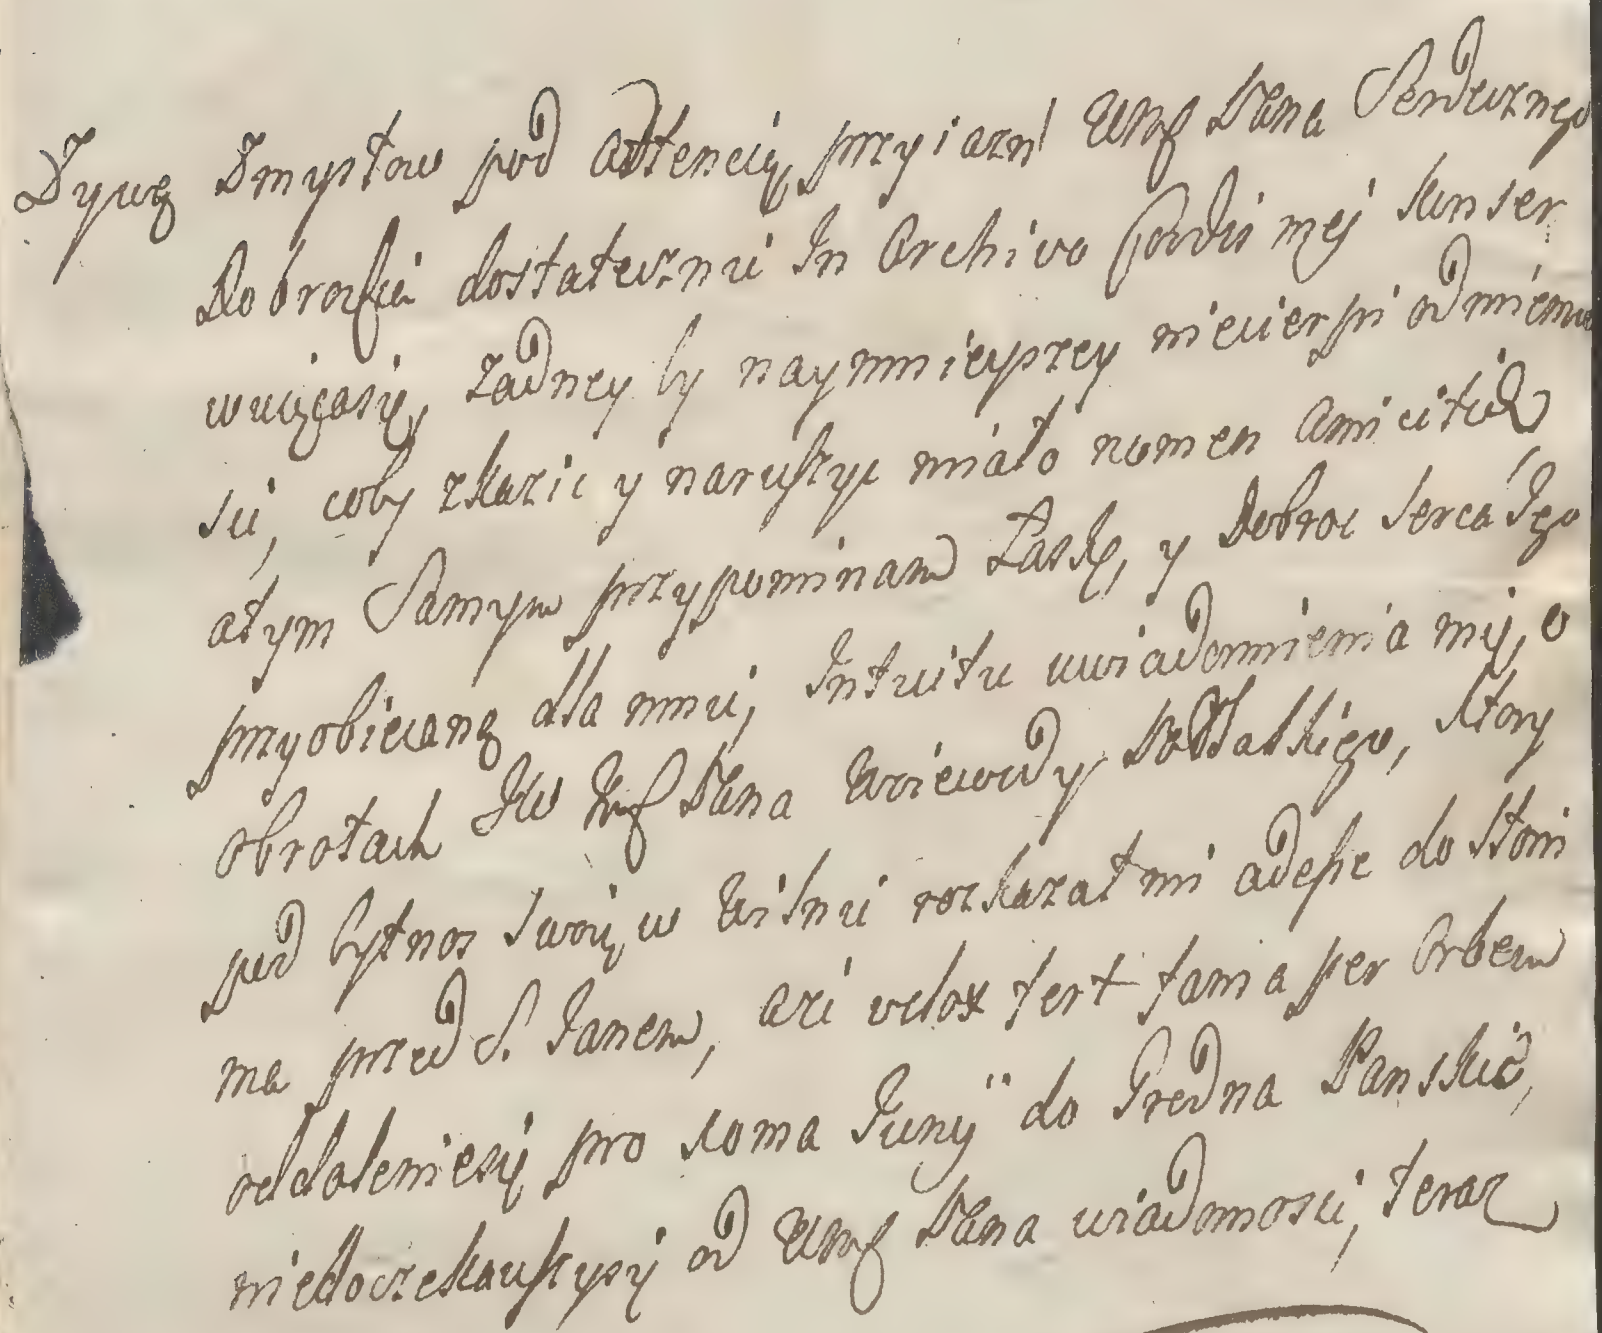 Żywą Zmysłow pod attencią przyiazń WMP Pana Serdecznego
Dobrodzieia dostatecznie In Archivo Cordis mej konser
wuiącasię, żadney by naymnieyszey niecierpi odmienno
sci, coby zkazic y naruszyc miało nomen Amicitiæ
atym Samym przypominam Łaskę, y Dobroc serca Jego
przyobiecaną dla mnie, Intuitu uwiadomienia mię, o
obrotach JW Pana Woiewody Podlaskiego, ktory
pod bytnos swoią w Wilnie rozkazał mi adesse do Słoni
ma przed S. Janem, azé velox fert fama per Orbem
oddaleniesię pro Roma Junÿ do Gredna Panskié,
niedoczekawszysię od WMP Pana wiadomosci, teraz